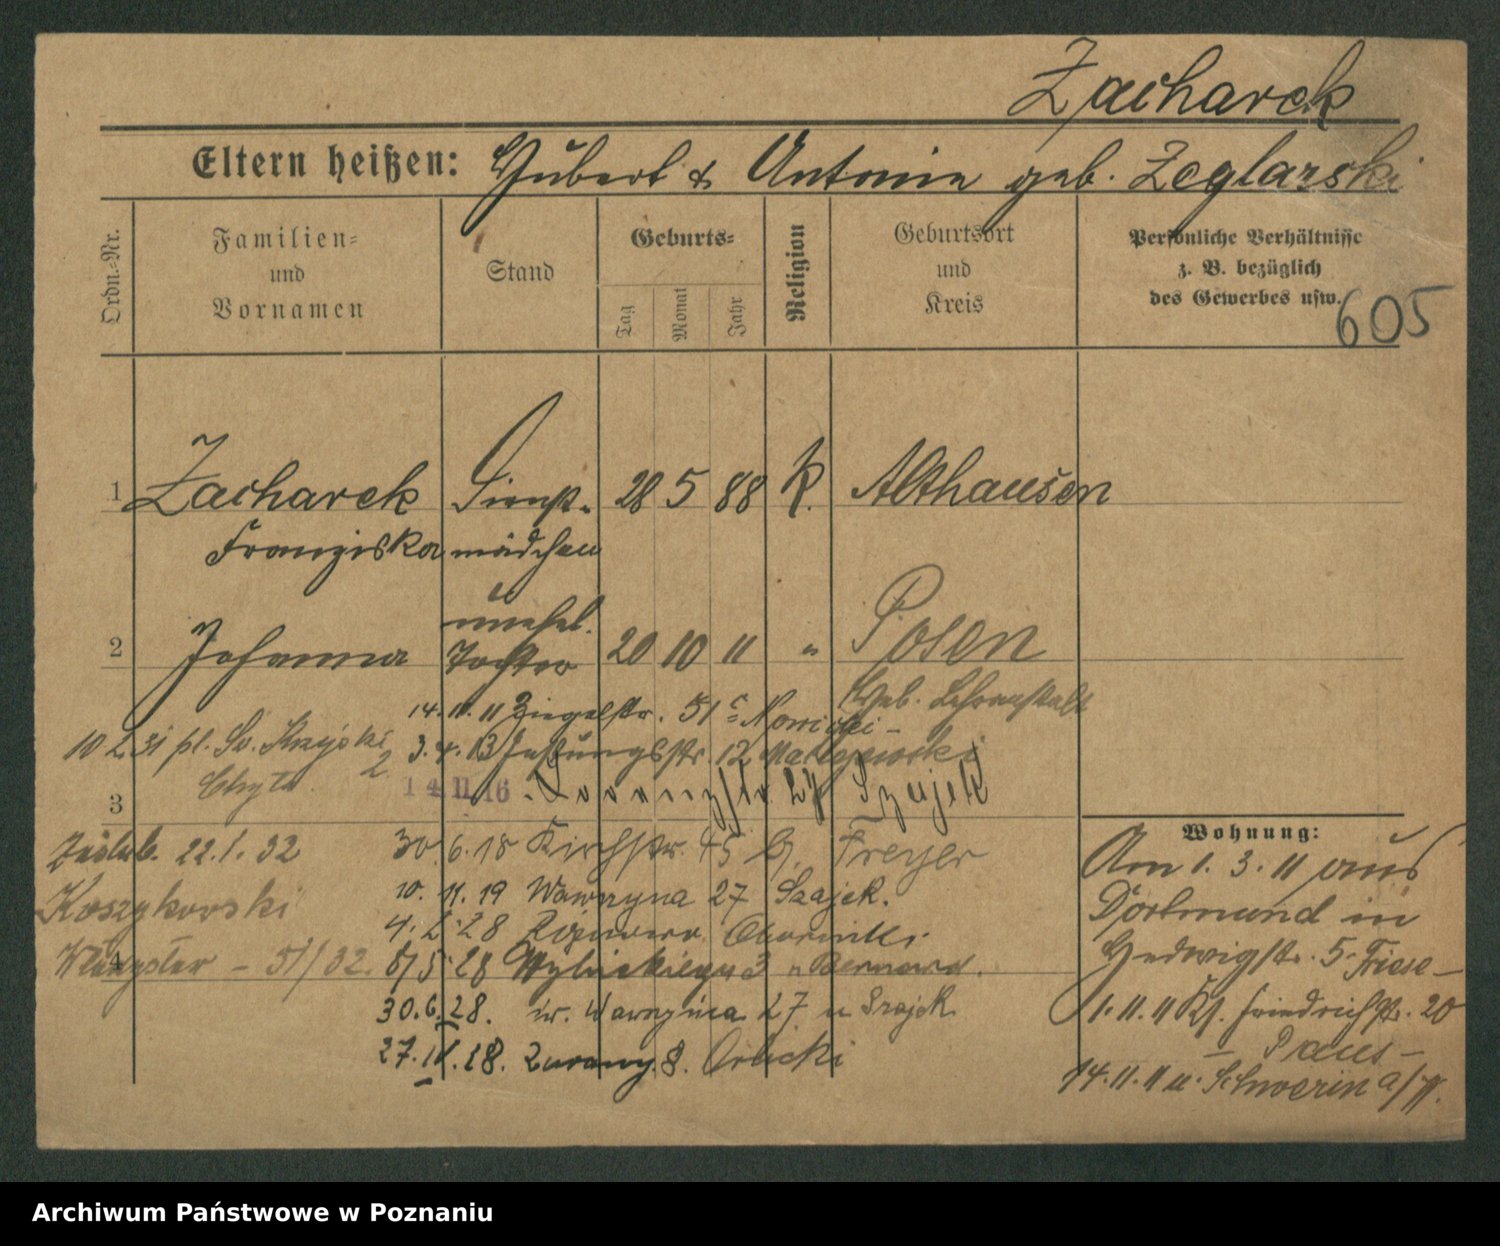 Zacharek
Eltern heißen: Hubert & Antonie geb. Zeglarski
Ordn.-Nr.
Familien- und Vornamen
Stand
Geburts-
Tag
Monat
Jahr
Religion
Geburtsort und Kreis
Persönliche Verhältnisse
z. B. bezüglich
des Gewerbes usw.
605
1 Zacharek Dienst- 28 5 88 K. Althausen
Franziska mädchen
2 Johanna unehel. Tochter 20 10 11 " Posen
Heb. Lehranstalt
14.11.11 Ziegelstr. 51 Nowicki
10 2 31 pl. Św. Krzyski 2
3.4.13 12
14 11 16 27 Szajek
3
30.6.18 Kirchstr. 45 Freyer
22.1.32
10.11.19 Wawrzyna 27 Szajek.
Koszykowski
4.2.28
4
8/5.28 3 " Bernard.
30.6.28. w. Wawrzyńca 27 u Szajek
27.11.28. 8. Orlicki
Wohnung:
Am 1.3.11 aus
Dortmund in
Hedwigstr. 5. Friese-
1.11.11 Kl. Friedrichstr. 20
14.11.11 u. Schwerin a/W.
Archiwum Państwowe w Poznaniu